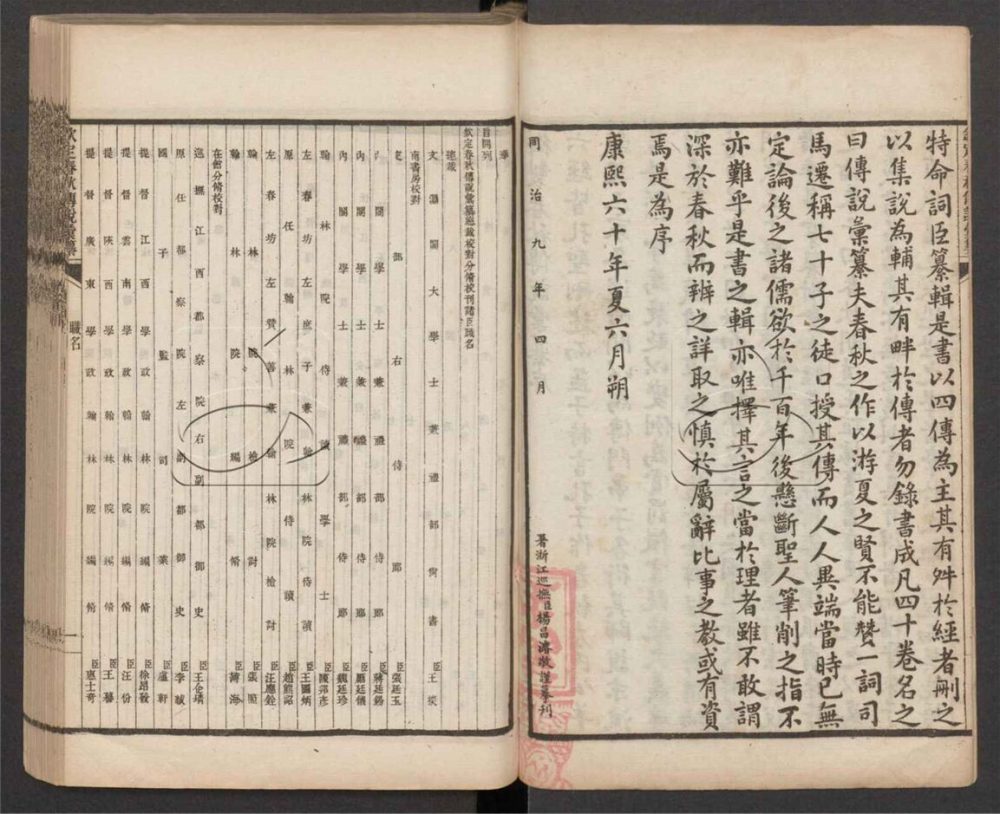 特命詞臣纂輯是書以四傳為主其有舛於經者刪之
以集說為輔其有畔於傳者勿錄書成凡四十卷名之
曰傳說彙纂夫春秋之作以游夏之賢不能贊一詞司
馬遷稱七十子之徒口授其傳而人人異端當時已無
定論後之諸儒欲於千百年後懸斷聖人筆削之指不
亦難乎是書之輯亦唯擇其言之當於理者雖不敢謂
深於春秋而辨之詳取之慎於屬辭比事之教或有資
焉是為序
康熙六十年夏六月朔
同治九年四月
署浙江巡撫臣楊昌濬敬謹摹刊
旨開列
欽定春秋傳說彙纂總裁校對分脩校刊諸臣職名
總裁
文淵閣大學士兼禮部尚書臣王掞
南書房校對
吏部右侍郎臣張廷玉
內閣學士兼禮部侍郎臣蔣廷錫
內閣學士兼禮部侍郎臣勵廷儀
內閣學士兼禮部侍郎臣魏廷珍
翰林院侍讀學士臣陳邦彥
左春坊左庶子兼翰林院侍讀臣王圖炳
原任翰林院侍讀臣趙熊詔
左春坊左贊善兼翰林院檢討臣汪應銓
翰林院檢討臣張照
翰林院編脩臣薄海
在館分脩校對
巡撫江西都察院右副都御史臣王企埥
原任都察院左副都御史臣李紱
國子監司業臣盧軒
提督江西學政翰林院編脩臣徐昂發
提督雲南學政翰林院編脩臣汪份
提督陝西學政翰林院編脩臣王
提督廣東學政翰林院編脩臣惠士奇
欽定春秋傳說彙纂
職名
一